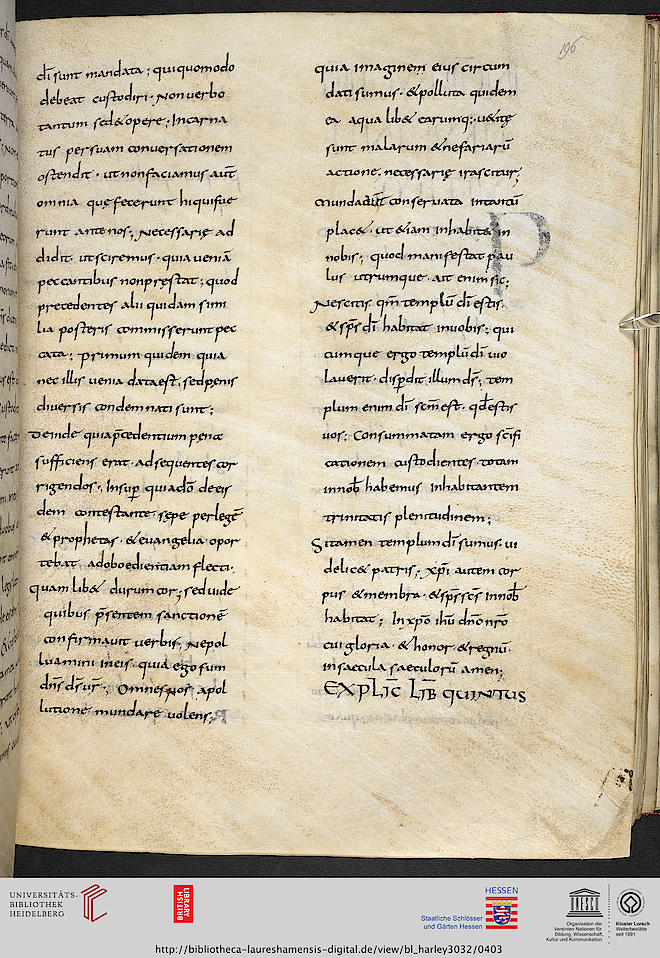 196
di sunt mandata; qui quomodo
debeat custodiri. Non verbo
tantum sed & opere; Incarna
tus per suam conversationem
ostendit. ut non faciamus aut
omnia que fecerunt hi qui fue
runt ante nos; Necessarie ad
didit. ut sciremus. quia venia
peccantibus non prestat; quod
precedentes alii quidam simi
lia posteris commisserunt pec
cata; primum quidem quia
nec illis venia data est. sed penis
diversis condemnati sunt;
Deinde quia pcedentium pena
sufficiens erat. ad sequentes cor
rigendos. Insup quia do de eis
dem contestante. sepe perlege
& prophetas. & euangelia opor
tebat. ad oboedientiam flecti.
quam lib& durum cor; sed uide
quibus psentem sanctione
confirmauit verbis; Ne pol
luamini in eis. quia ego sum
dns ds ur; Omnes nos apol
lutione mundare volens;
quia imaginem eius circum
dati sumus. & polluta quidem
ea aqua lib& earumq;. u& te
sunt malarum & nefariaru
actione. necessarie irascitur;
Mundaut conservata in tantu
plac&. ut &iam inhabit& in
nobis; quod manifestat pau
lus utrumque. ait enim sic;
Nescitis qm templu di estis.
& sps di habitat in uobis; qui
cumque ergo templu di uio
laverit. dispdit illum ds; tem
plum enim di scm est. qd estis
uos; Consummatam ergo scifi
cationem custodientes. totam
in nob habemus inhabitantem
trinitatis plenitudinem;
Si tamen templum di sumus. ui
delic& patris; xpi autem cor
pus & membra. & sps scs in nob
habitat; In xpo ihu dno nro
cui gloria. & honor & regnu.
in saecula saeculoru amen;
EXPLIC LIB QUINTUS
UNIVERSITÄTS-
BIBLIOTHEK
HEIDELBERG
BRITISH
LIBRARY
HESSEN
Staatliche Schlösser
und Gärten Hessen
UNESCO
Organisation der
Vereinten Nationen für
Bildung, Wissenschaft,
Kultur und Kommunikation
Kloster Lorsch
Welterbestätte
seit 1991
http://bibliotheca-laureshamensis-digital.de/view/bl_harley3032/0403